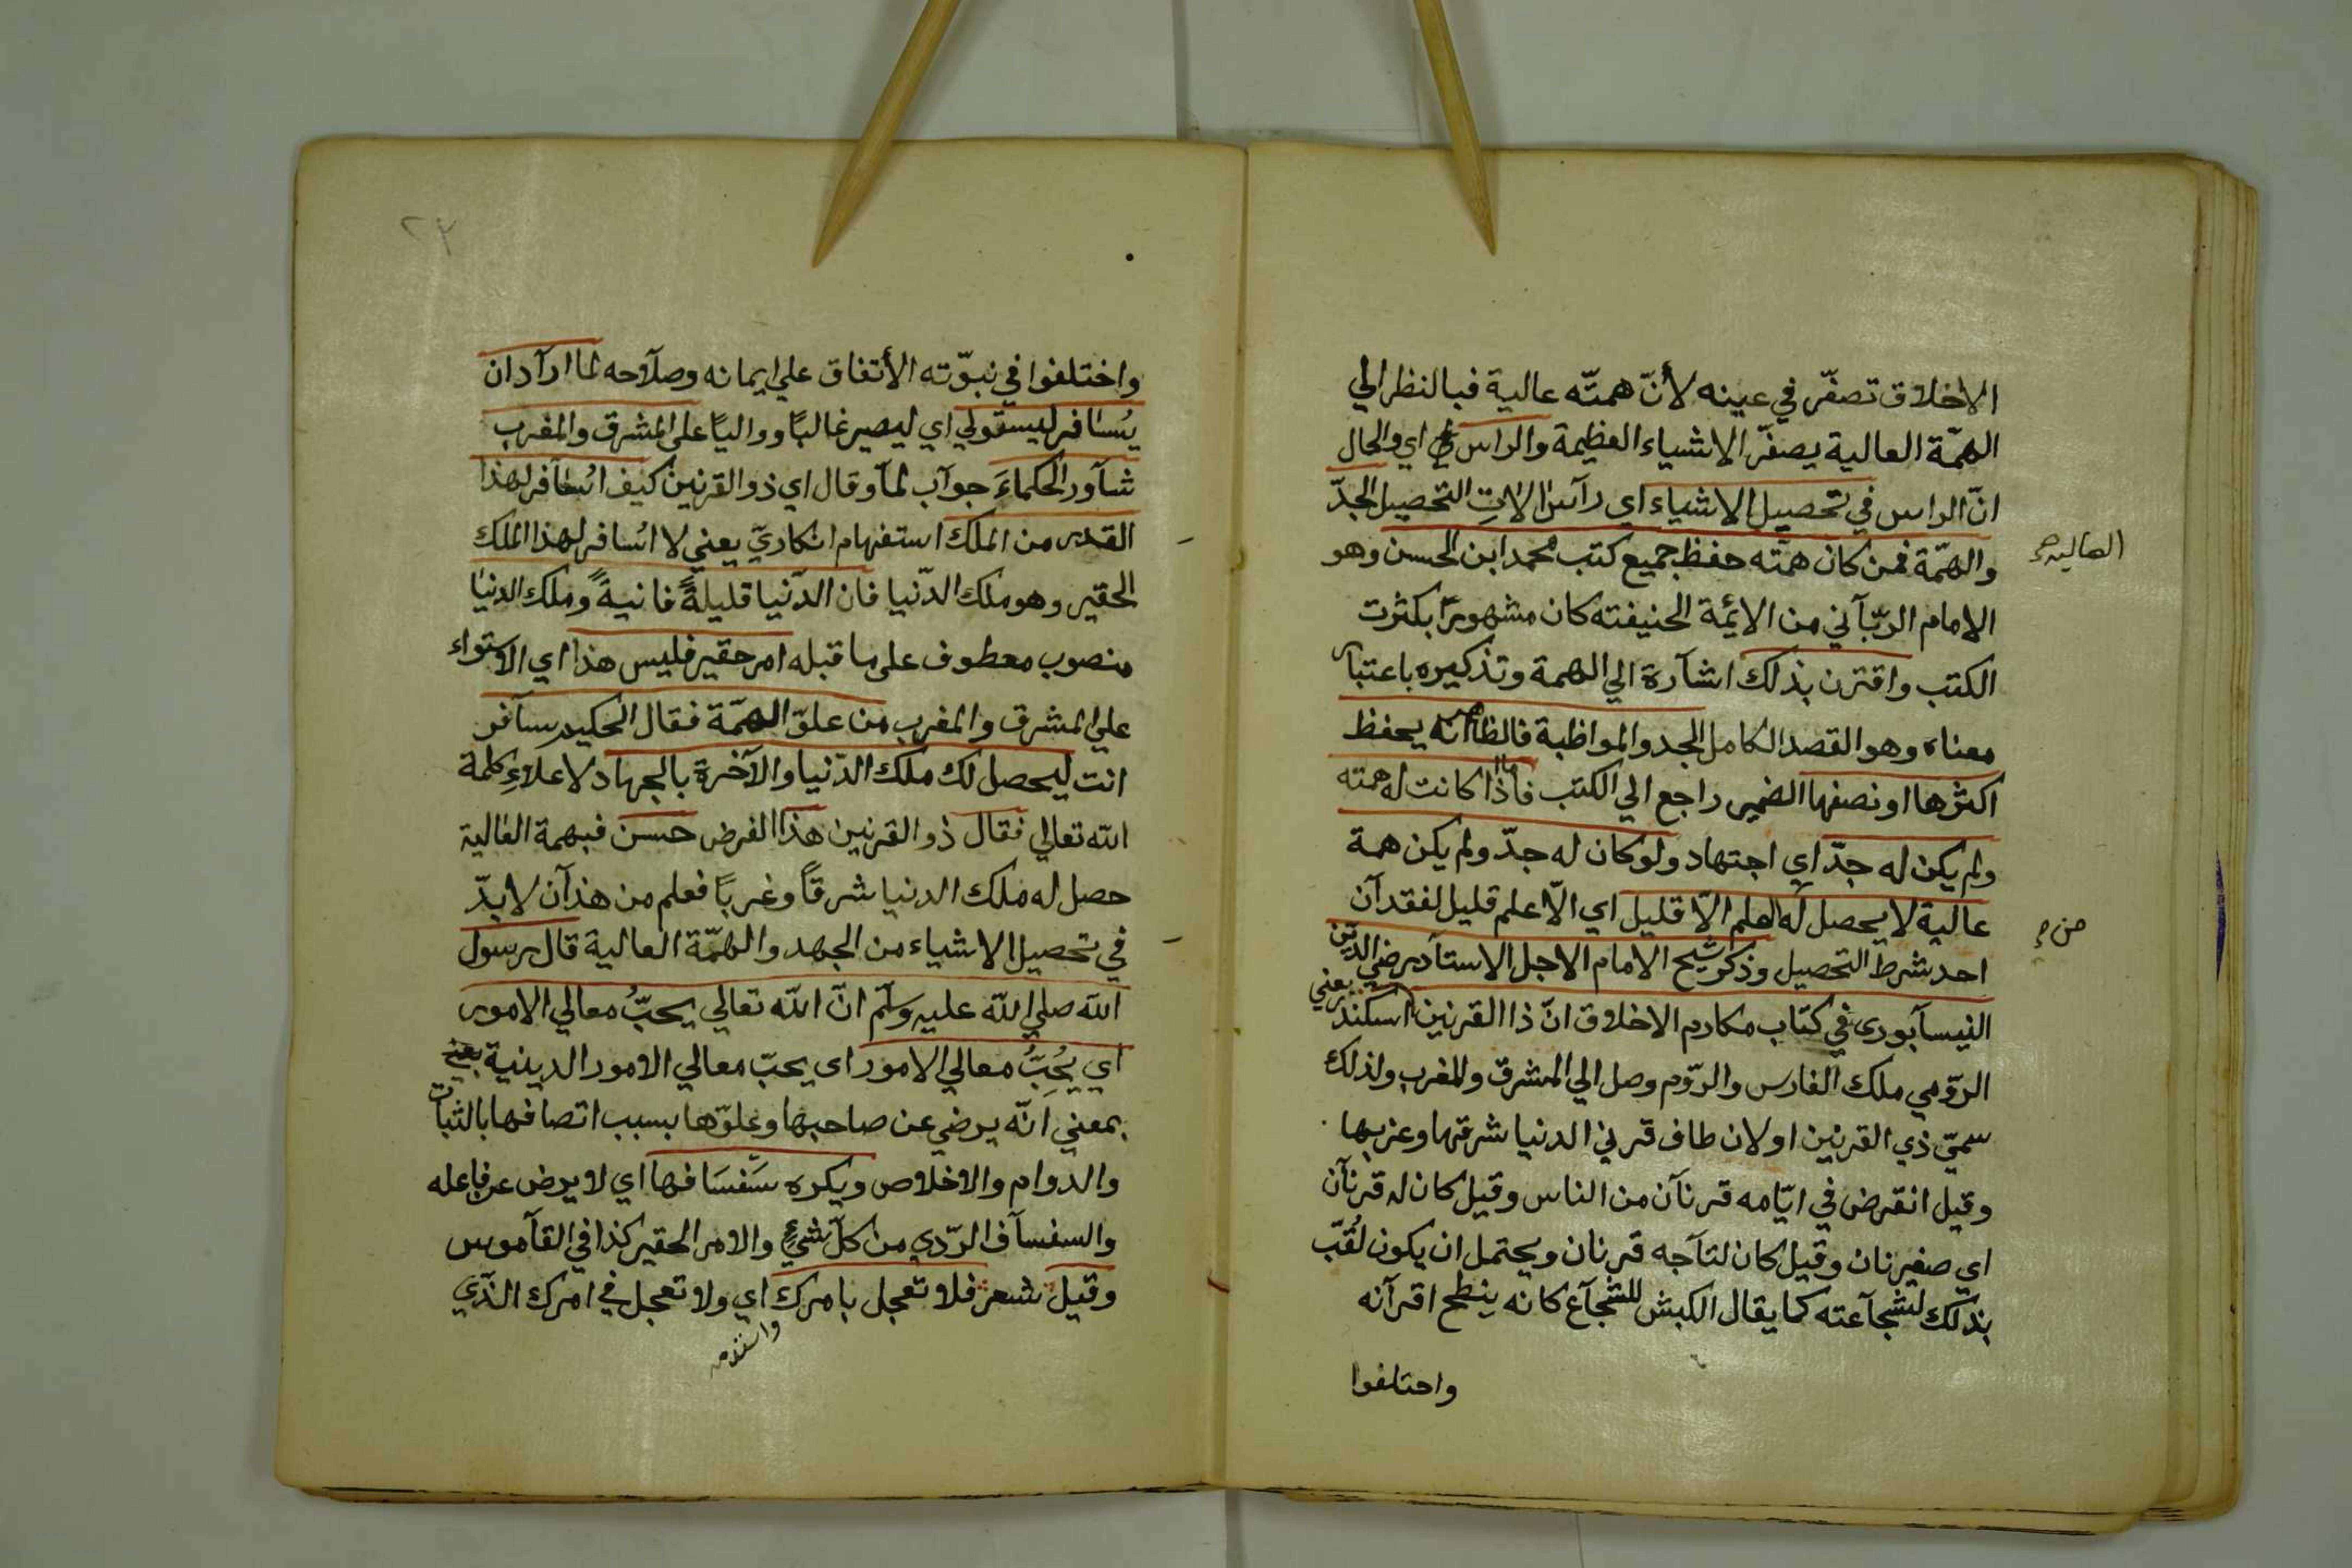 الاخلاق تصغّر في عينه لأنّ همتّه عالية فبالنظر الي
الهمّة العالية يصغّر الاشياء العظيمة والراس اي والحال
انّ الراس في تحصيل الاشياء اي رآس الالاتِ التحصيل الجدّ
والهمّة فمن كان همّته حفظ جميع كتب محمد ابن الحسن وهو
العالية صح
الامام الربّآني من الايمّة الحنيفته كان مشهورًا بكثرت
الكتب واقترن بذلك اشآرة الي الهمة وتذكيره باعتبار
معناه وهو القصد الكامل الجد والمواظبة فالظاهر انه يحفظ
اكثرها او نصفها الضمير راجع الي الكتب فاذا كانت له همته
ولم يكن له جدّ اي اجتهاد ولو كان له جدّ ولم يكن همة
عالية لا يحصل له العلم الّا قليل اي الّا علم قليل لفقدآن
احد شرط التحصيل وذكر شيخ الامام الاجل الاستآد رضي الدّين
النيسآبورى في كتاب مكارم الاخلاق انّ ذا القرنين اسكندر يعني
الرّومي ملك الفارس والرّوم وصل الي المشرق والمغرب ولذلك
سميّ ذي القرنين او لان طاف قرني الدنيا شرقها وغربها
وقيل انقرض في ايّامه قرنآن من الناس وقيل كان له قرنآن
اي صغيرنان وقيل كان لتآجه قرنان ويحتمل ان يكون لُقّب
بذلك لشجآعته كما يقال الكبش للشجآع كانه ينطح اقرآنه
واختلفوا
٢٣
واختلفوا في نبوّته الأتفاق علي ايمانه وصلآحه لما ارآد ان
يسافر ليستولي اي ليصير غالبًا وواليًا علي المشرق والمغرب
شآور الحكماءَ جوآب لمآ وقال اي ذو القرنين كيف اسافر لهذا
القدر من الملك استفهام انكاريّ يعني لا اسافر لهذا الملك
الحقير وهو ملك الدّنيا فان الدّنيا قليلةً فانيةً وملك الدنيا
منصوب معطوف علي ما قبله امر حقير فليس هذا اي الاستواء
علي المشرق والمغرب من علوّ الهمّة فقال الحكيم سآفر
انت ليحصل لك ملك الدّنيا والآخرة بالجهاد لاعلاءِ كلمة
الله تعالي فقال ذو القرنين هذا الغرض حسن فبهمة العالية
حصل له ملك الدنيا شرقاً وغربًا فعلم من هذآن لابدّ
في تحصيل الاشياء من الجهد والهمّة العالية قال رسول
الله صلي الله عليه وسلّم انّ الله تعالي يحبّ معالي الامور
اي يُحِبُّ معالي الامور اى يحبّ معالي الامور الدينية يعني
بمعني انّه يرضي عن صاحبها وعلوّها بسبب اتصافها بالثبات
والدوام والاخلاص ويكره سَفسَافها اي لا يرض عن فاعله
والسفسآف الرّدي من كلّ شيءٍ والامر الحقير كذا في القآموس
وقيل شعر فلا تعجل بامرك اي ولا تعجل في امرك الذّي